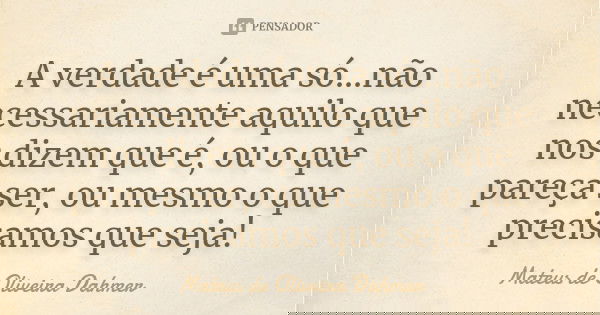 PENSADOR
A verdade é uma só...não
necessariamente aquilo que
nos dizem que é, ou o que
pareça ser, ou mesmo o que
precisamos que seja!
Mateus de Oliveira Dahmer